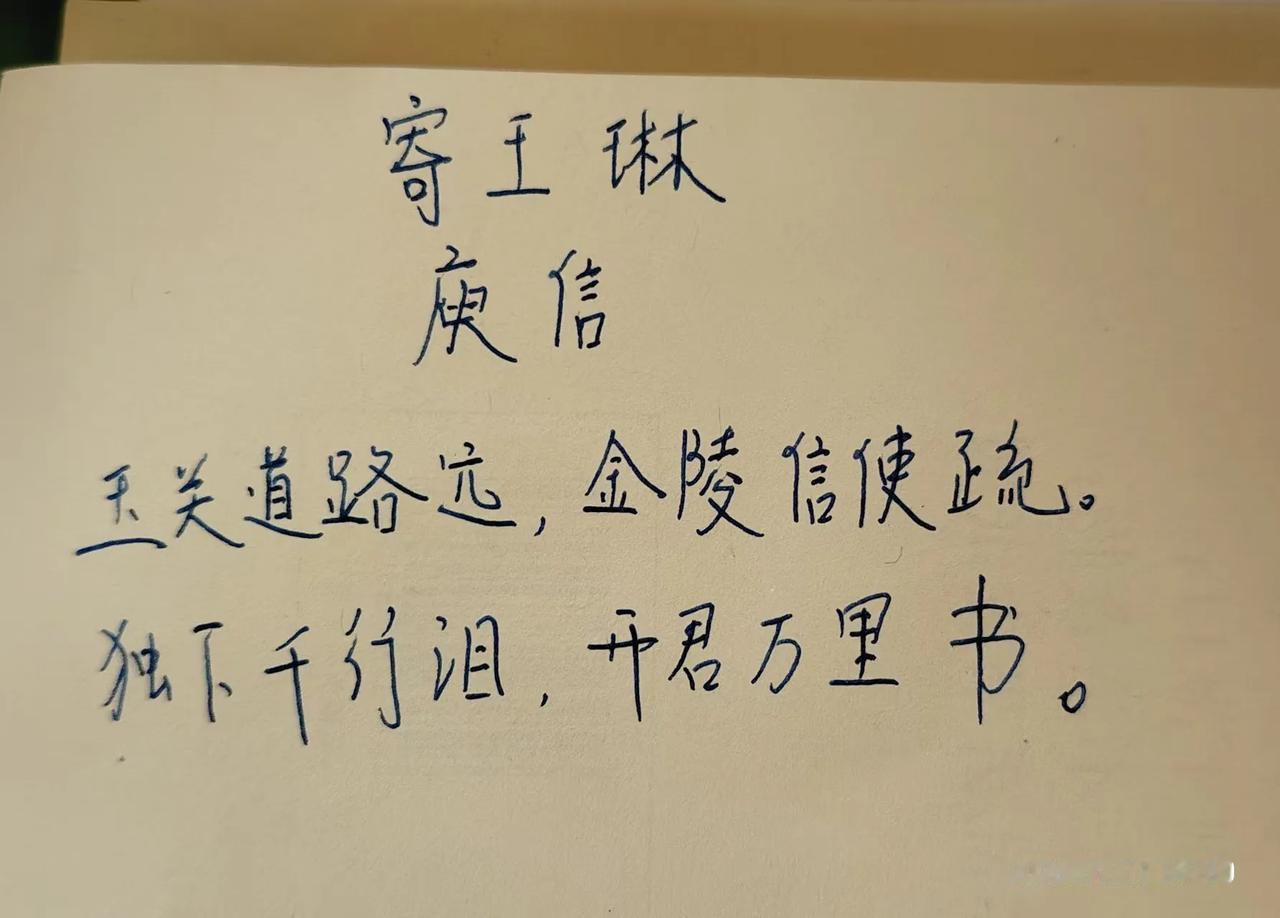 寄王琳
庾信
玉关道路远，金陵信使疏。
独下千行泪，开君万里书。